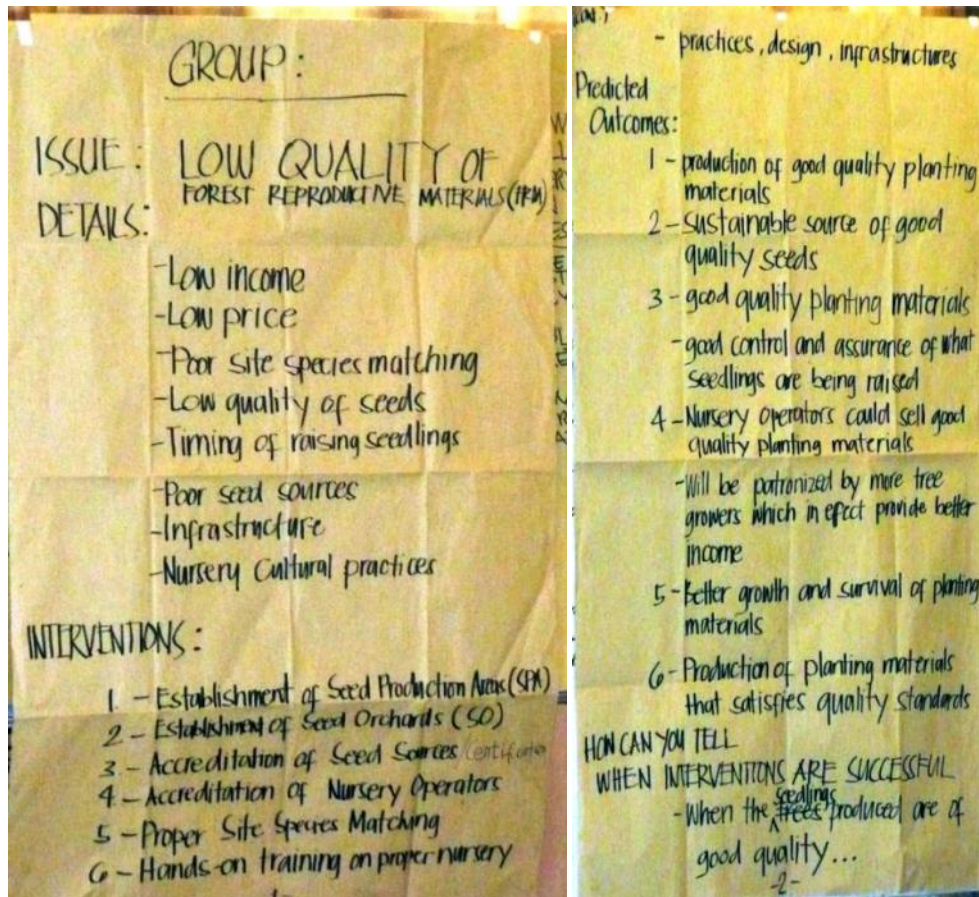 GROUP:
ISSUE: LOW QUALITY OF
FOREST REPRODUCTIVE MATERIALS (FRM)
DETAILS:
-Low income
-Low price
-Poor site species matching
-Low quality of seeds
-Timing of raising seedlings
-Poor seed sources
-Infrastructure
-Nursery cultural practices
INTERVENTIONS:
1 - Establishment of Seed Production Areas (SPA)
2 - Establishment of Seed Orchards (SO)
3 - Accreditation of Seed Sources
4 - Accreditation of Nursery Operators
5 - Proper Site Species Matching
6 - Hands-on training on proper nursery
- practices, design, infrastructures
Predicted
Outcomes:
1 - production of good quality planting
materials
2 - sustainable source of good
quality seeds
3 - good quality planting materials
- good control and assurance of what
seedlings are being raised
4 - Nursery operators could sell good
quality planting materials
- Will be patronized by more tree
growers which in efect provide better
income
5 - Better growth and survival of planting
materials
6 - Production of planting materials
that satisfies quality standards
HOW CAN YOU TELL
WHEN INTERVENTIONS ARE SUCCESSFUL
- When the seedlings produced are of
good quality...
-2-